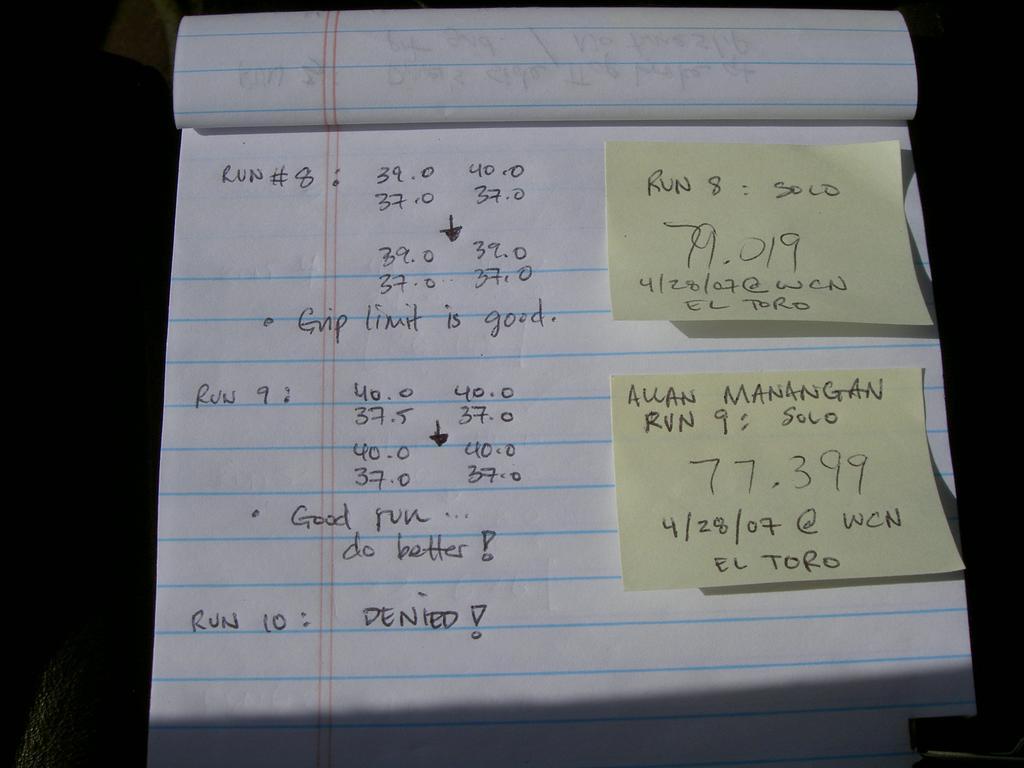 RUN #8 : 39.0 40.0
37.0 37.0
39.0 39.0
37.0 37.0
• Grip limit is good.
RUN 8 : SOLO
79.019
4/28/07 @ WCN
EL TORO
RUN 9 : 40.0 40.0
37.5 37.0
40.0 40.0
37.0 37.0
• Good run ...
do better!
ALLAN MANANGAN
RUN 9 : SOLO
77.399
4/28/07 @ WCN
EL TORO
RUN 10 : DENIED!